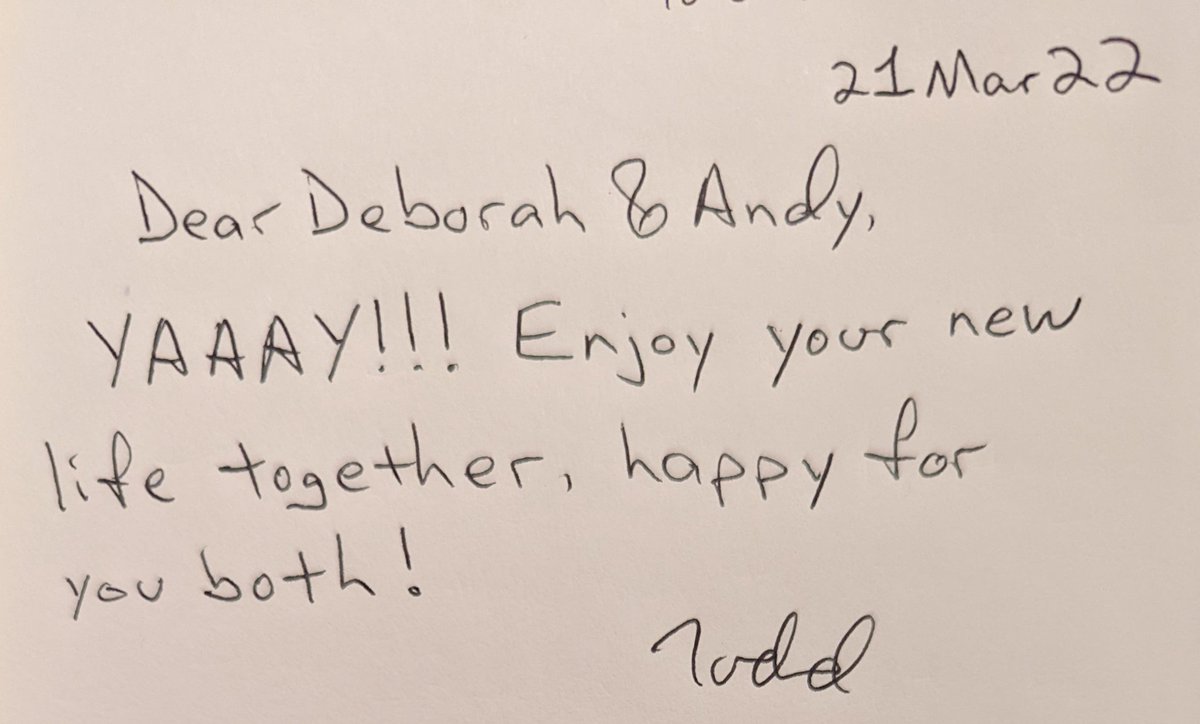 21 Mar 22
Dear Deborah & Andy,
YAAAY!!! Enjoy your new
life together, happy for
you both!
Todd